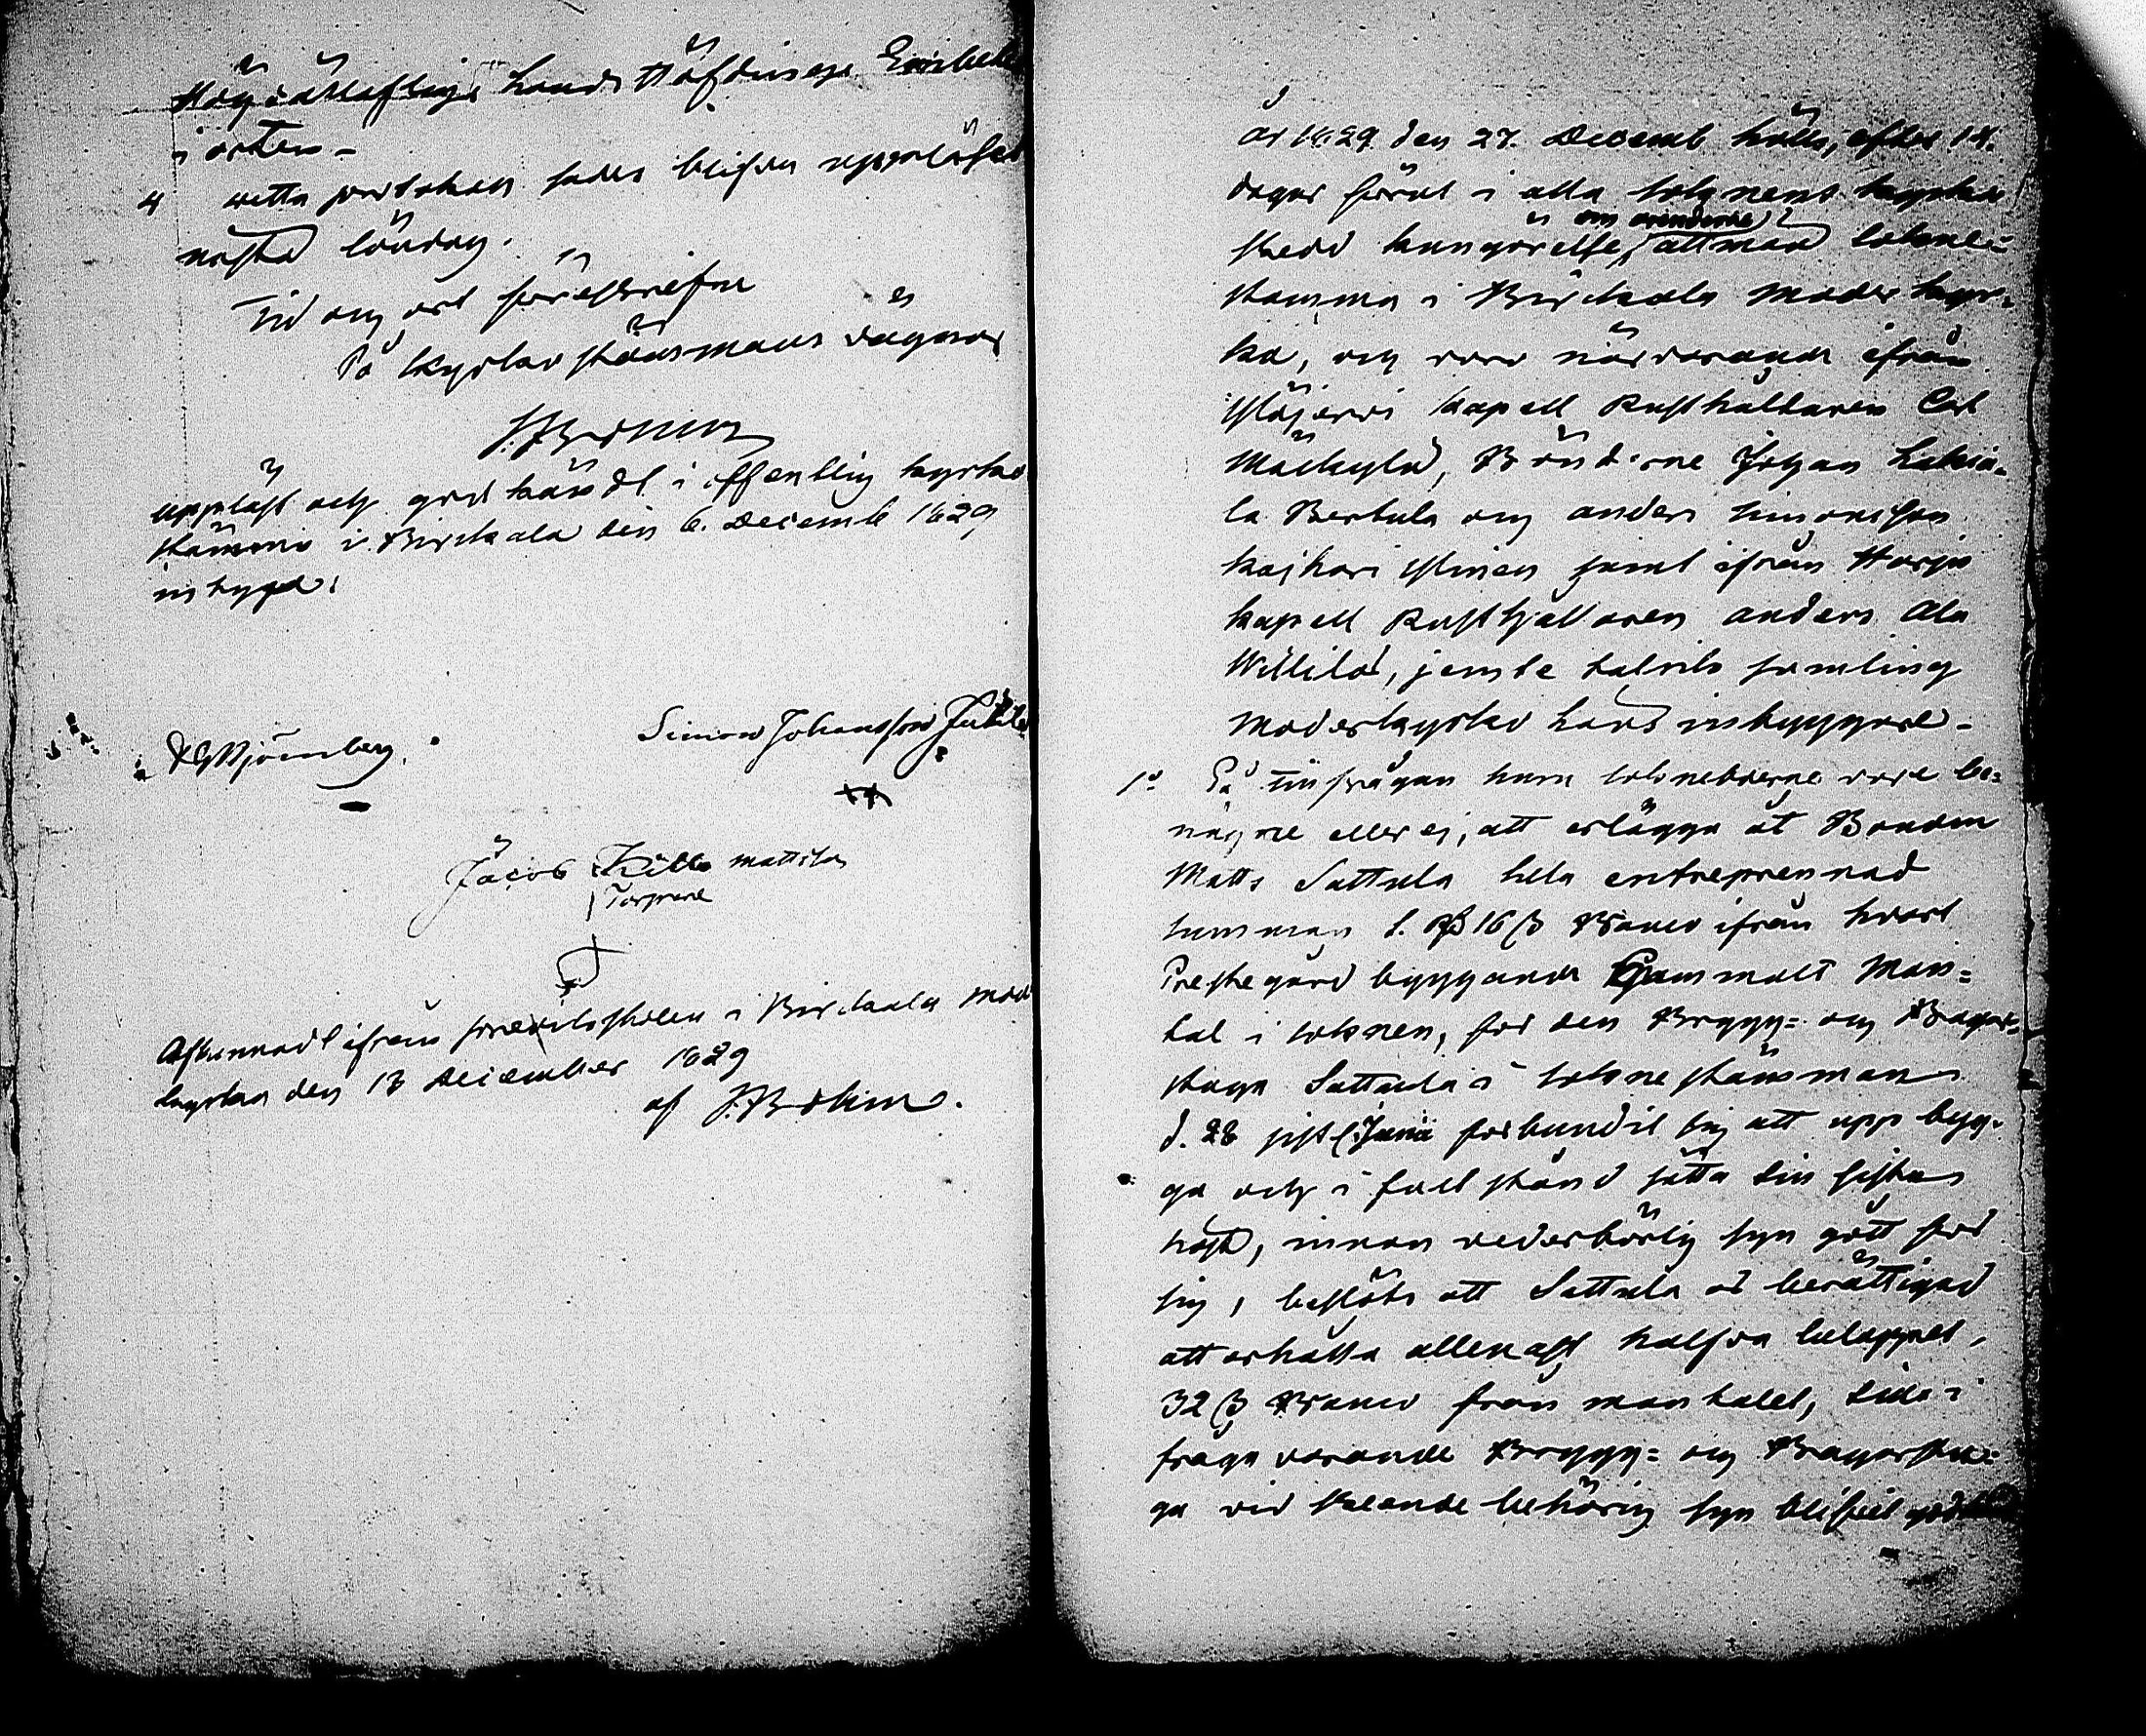 Högvällofliga Lands Höfdinge Embetet
i orten.
4 Detta protokoll skulle blifva uppläsit
nästa söndag.
Tid och ort föreskrifne
På Kyrkostämmans vägnar
uppläst och godkändt i offentlig kyrko
stämma i Birckala den 6. Decemb 1829
intyga:
Björnberg.
Simon Johansson
Jacob Kille mattila
Torpare
Afkunnadt ifrån predikstolen i Birckala Mod
kyrka den 13 December 1829
af
År 1829 den 27. Decemb hölls, efter 14.
dagar förut i alla soknens kyrkor
skedd kungörelse, om ärenderne allmän sokne-
stämma i Birckala Moder kyr-
ka, och voro närvarande ifrån
Ylöjervi Kapell Rusthållaren Carl
Mäckylä, Bönderne Johan
la Bertula och Anders Simonsson
Kajhari Ylinen samt ifrån Harju
kapell Rusthållaren Anders Ala
Willilä, jemte talrik samling
Moderkyrko bors inbyggare.
1o På tillfrågan huru sokneboerne vore be-
nägne eller ej, att erlägga åt Bonden
Matts Sattula hela entreprennad
summan 1. Rß 16 ß Banco ifrån hvart
Prestegård byggande Gammalt Man-
tal i soknen, för den Brygg- och Bagar-
stuga Sattula i sokne stämman
d. 28 sistl. Junii forbundit sig att uppbyg-
ga och i full stånd sätta till sistan
höst, innan vederbörlig syn gått för
sig, beslöts att Sattula är berättigad
att erhålla allenast halfva beloppet,
32 ß Banco från mantalet,
fråga varande Brygg- och Bagarstu-
ga vid skeende behörig syn blifvit